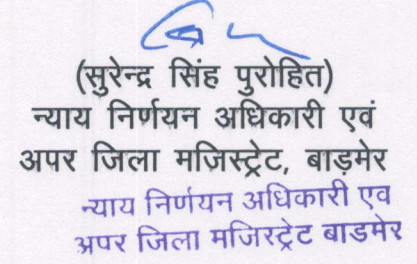 (सुरेन्द्र सिंह पुरोहित)
न्याय निर्णयन अधिकारी एवं
अपर जिला मजिस्ट्रेट, बाड़मेर
न्याय निर्णयन अधिकारी एव
अपर जिला मजिस्ट्रेट बाडमेर